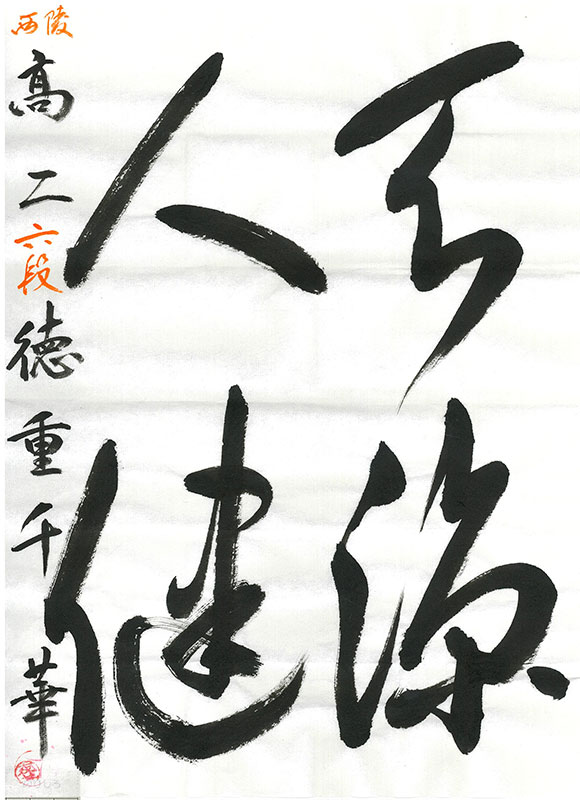 天涼
人健
西陵
高二六段徳重千華